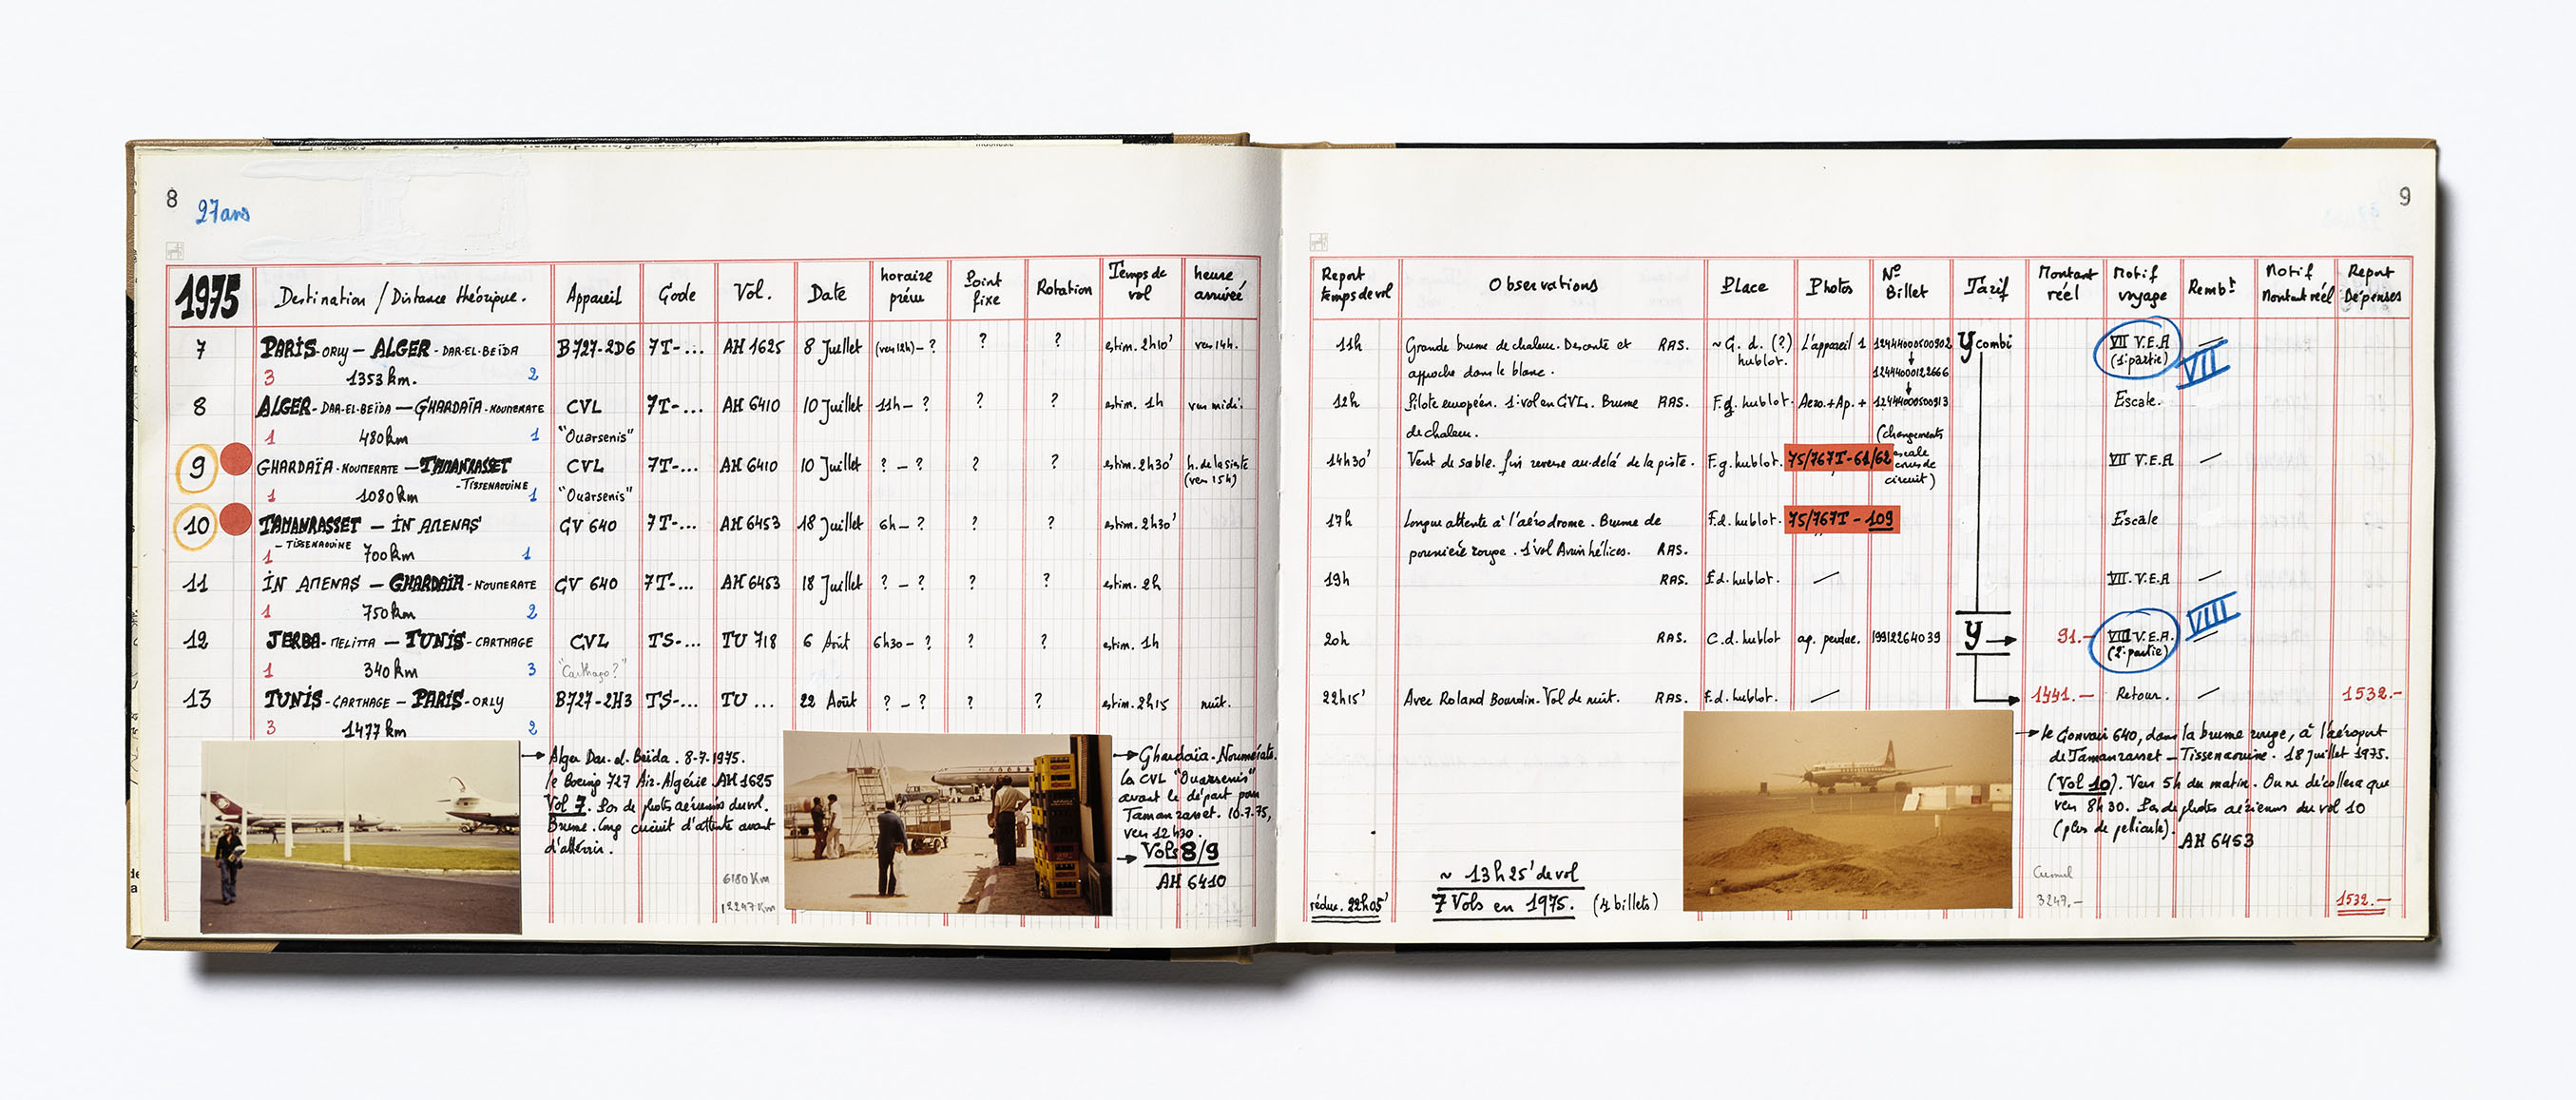 8
27 ans
1975 Destination / Distance théorique. Appareil Code Vol. Date horaire prévu Point fixe Rotation Temps de vol heure arrivée
7 PARIS-ORLY — ALGER - DAR-EL-BEÏDA B727-2D6 7T-... AH 1625 8 Juillet (vers 12h) - ? ? ? estim. 2h10' vers 14h.
3 1353 km. 2
8 ALGER - DAR-EL-BEÏDA — GHARDAÏA - NOUMERATE CVL 7T-... AH 6410 10 Juillet 11h - ? ? ? estim. 1h vers midi.
1 480 km 1 "Ouarsenis"
9 GHARDAÏA - NOUMERATE — TAMANRASSET CVL 7T-... AH 6410 10 Juillet ? - ? ? ? estim. 2h30' h. de la sieste
- TISSENAOUINE (vers 15h)
1 1080 km 1 "Ouarsenis"
10 TAMANRASSET — IN AMENAS CV 640 7T-... AH 6453 18 Juillet 6h - ? ? ? estim. 2h30'
- TISSENAOUINE
1 700 km 1
11 IN AMENAS — GHARDAÏA - NOUMERATE CV 640 7T-... AH 6453 18 Juillet ? - ? ? ? estim. 2h
1 750 km 2
12 JERBA - MELITTA — TUNIS - CARTHAGE CVL TS-... TU 718 6 Août 6h30 - ? ? ? estim. 1h
1 340 km 3 "Carthago?"
13 TUNIS - CARTHAGE — PARIS - ORLY B727-2H3 TS-... TU ... 22 Août ? - ? ? ? estim. 2h15 nuit.
3 1477 km 2
→ Alger Dar-el-Beïda. 8-7-1975.
le Boeing 727 Air-Algérie AH 1625
Vol 7. Pas de photos aériennes du vol.
Brume. Long circuit d'attente avant
d'atterrir.
6180 Km
12247 Km
→ Ghardaïa-Noumérate.
La CVL "Ouarsenis"
avant le départ pour
Tamanrasset. 10-7-75,
vers 12h30.
→ Vols 8/9
AH 6410
9
Report temps de vol Observations Place Photos N° Billet Tarif Montant réel Motif voyage Rembt Motif Montant réel Report Dépenses
11h Grande brume de chaleur. Descente et RAS. ~ G. d. (?) L'appareil 1 1244400500902 Y combi VII V.E.A
approche dans le blanc. hublot. 1244400122666 (1e partie) VII
12h Pilote européen. 1e vol en CVL. Brume RAS. F.g. hublot. Aero.+Ap.+ 1244400500913 Escale.
de chaleur. (changements
14h30' Vent de sable. fini reverse au-delà de la piste. F.g. hublot. 75/767T-61/62 escale VII V.E.A
cours de
circuit)
17h Longue attente à l'aérodrome. Brume de F.d. hublot. 75/767T - 109 Escale
poussière rouge. 1e vol Avion hélices. RAS.
19h RAS. F.d. hublot. VII. V.E.A
20h RAS. C.d. hublot ap. perdue. 19912264039 Y → 91.- VIII V.E.A. VIII
(2e partie)
22h15' Avec Roland Bourdin. Vol de nuit. RAS. F.d. hublot. 1441.- Retour. 1532.-
→ le Convair 640, dans la brume rouge, à l'aéroport
de Tamanrasset - Tissenaouine. 18 juillet 1975.
(Vol 10). Vers 5h du matin. On ne décollera que
vers 8h30. Pas de photos aériennes du vol 10
(plus de pellicule).
AH 6453
~ 13h25' de vol
7 Vols en 1975. (4 billets)
réduc. 22h05'
Cumul
3247.-
1532.-